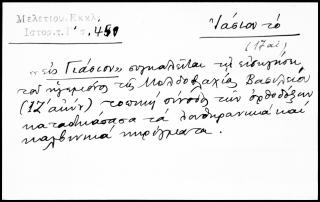 Μελετίου. Εκκλ.
Ιστορ. τ. Γ΄ σ. 450
Ιάσιον τό
(17 αἰ)
«εἰς Γιάσιον» συγκαλεῖται τῇ εἰσηγήσει
τοῦ ἡγεμόνος τῆς Μολδοβλαχίας Βασιλείου
(17΄ αἰών) τοπική σύνοδος τῶν ὀρθοδόξων
καταδικάσασα τά λουθηρανικά καί
καλβινικά κηρύγματα.